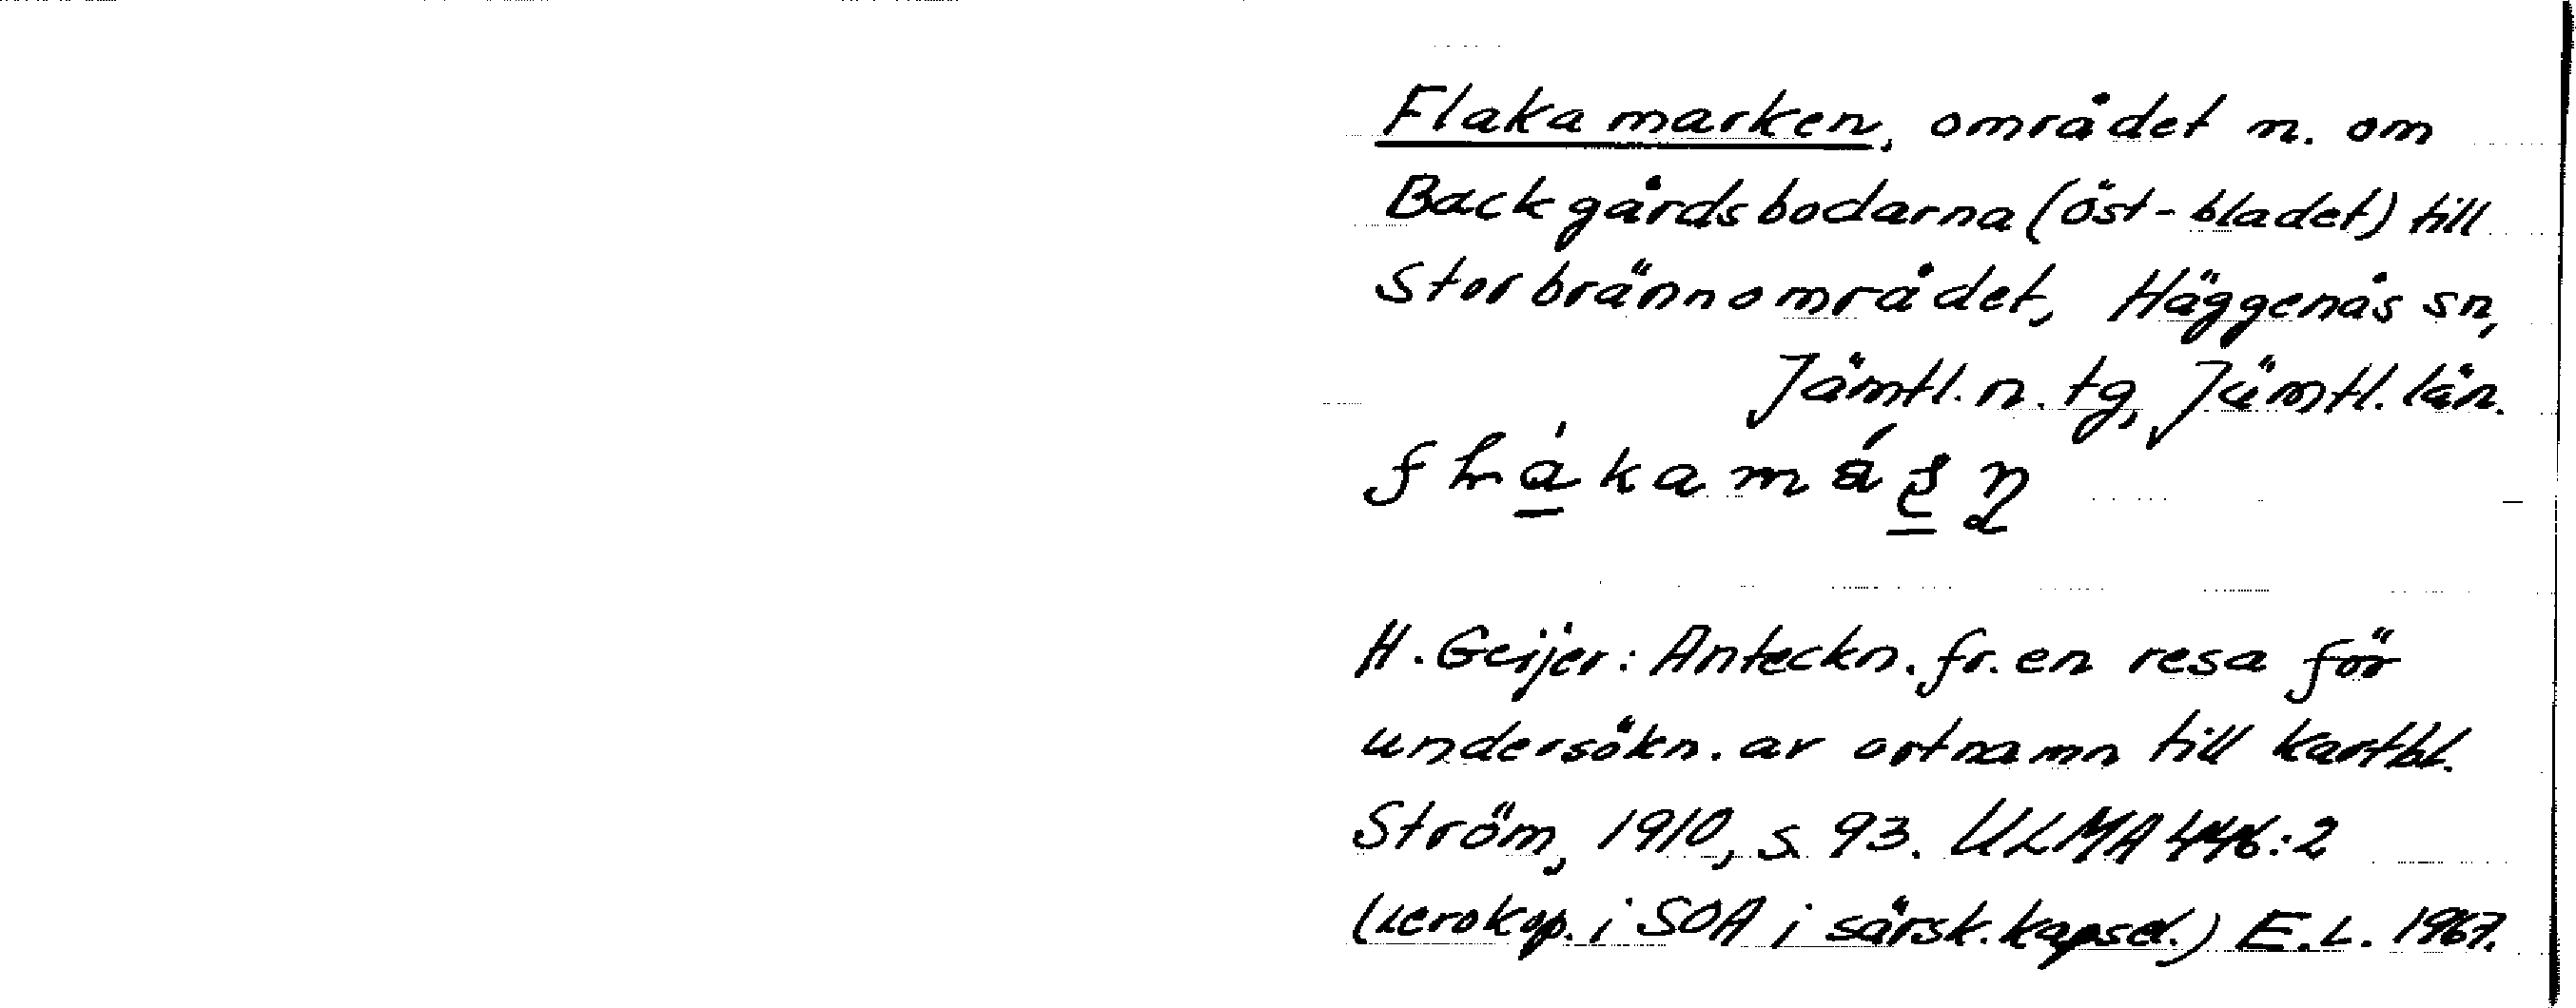 Flakamarken, området n. om
Backgårdsbodarna (öst-bladet) till
Storbrännområdet, Häggenås sn,
Jämtl. n. tg, Jämtl. län.
H. Geijer: Anteckn. fr. en resa för
undersökn. av ortnamn till kartbl.
Ström, 1910, s. 93. ULMA 446:2
(xerokop. i SOA i särsk. kapsel.) E.L. 1967.